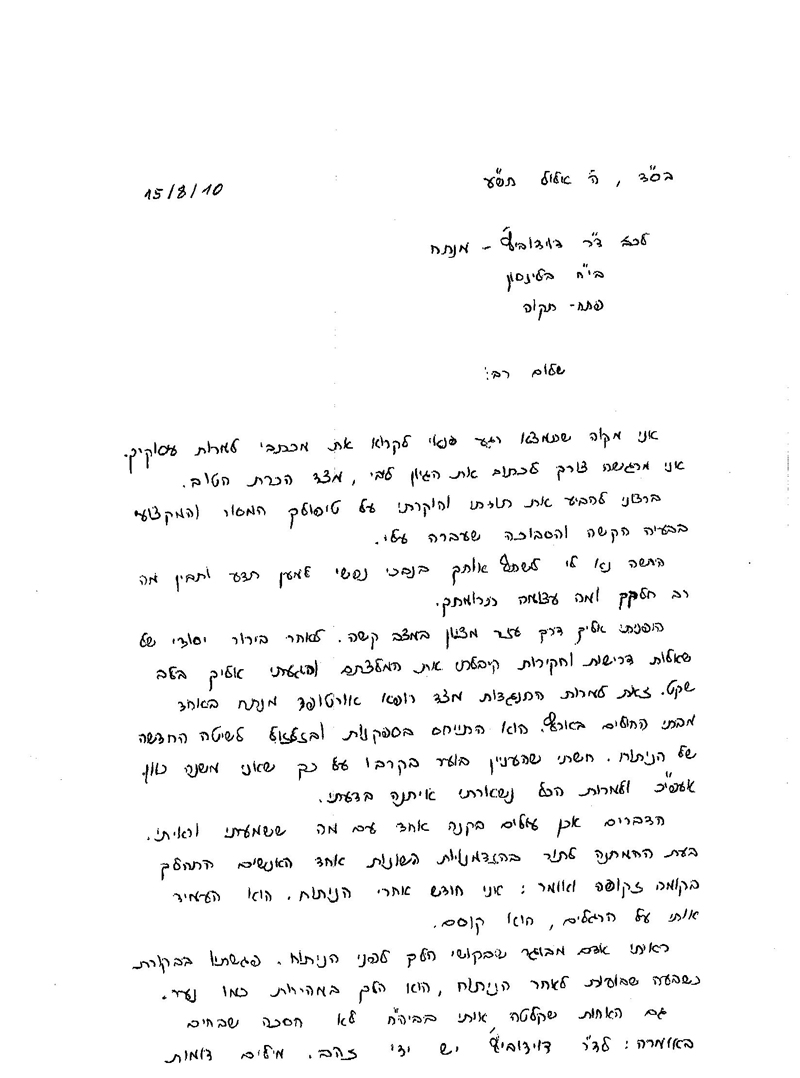 בס"ד, ה' אלול תש"ע
15/8/10
לכב' ד"ר דוידוביץ' - מנתח
בי"ח בלינסון
פתח-תקוה
שלום רב:
אני מקוה שתמצא רגע פנאי לקרוא את מכתבי למרות עיסוקיך.
אני מרגישה צורך לכתוב את הגיון לבי, מצד הכרת הטוב.
ברצוני להביע את תודתי והוקרתי על טיפולך המסור והמקצועי
בבעיה הקשה והסבוכה שעברה עלי.
הרשה נא לי לשתף אותך בנבכי נפשי למען תדע ותבין מה
רב חלקך ומה עצומה תרומתך.
הופנתי אליך דרך עזר מציון במצב קשה. לאחר בירור יסודי של
שאלות דרישות וחקירות קיבלתי את המלצתם והגעתי אליך בלב
שקט. זאת למרות התנגדות מצד רופא אורטופד מנתח באחד
מבתי החולים בארץ. הוא התייחס בספקנות ובזלזול לשיטה החדשה
של הניתוח. חשתי שהענין בוער בקרבו על כך שאני משנה כוון.
אעפ"כ ולמרות הכל נשארתי איתנה בדעתי.
הדברים אכן עולים בקנה אחד עם מה ששמעתי וראיתי.
בעת ההמתנה לתור בהזדמנויות השונות אחד האנשים התהלך
בקומה זקופה ואומר: אני חודש אחרי הניתוח. הוא העמיד
אותי על הרגלים, הוא קוסם.
ראיתי אדם מבוגר שבקושי הלך לפני הניתוח. פגשתיו בבקורת
כשבעה שבועות לאחר הניתוח, הוא הלך במהירות כמו נער.
גם האחות שקלטה אותי בביה"ח לא חסכה שבחים
באומרה: לד"ר דוידוביץ' יש ידי זהב. מילים דומות